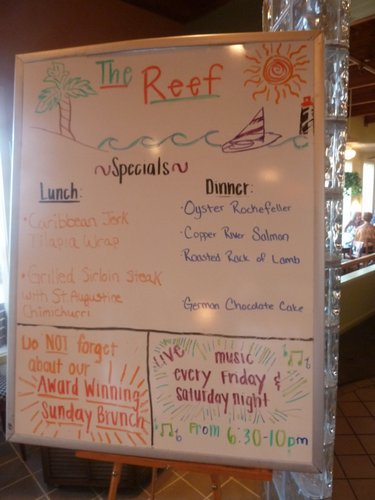 The Reef
~Specials~
Lunch:
• Caribbean Jerk
Tilapia Wrap
• Grilled Sirloin Steak
with St Augustine
Chimichurri
Dinner:
• Oyster Rockefeller
• Copper River Salmon
• Roasted Rack of Lamb
• German Chocolate Cake
Do NOT forget
about our
Award Winning
Sunday Brunch
Live music
every Friday &
Saturday night
From 6:30-10pm